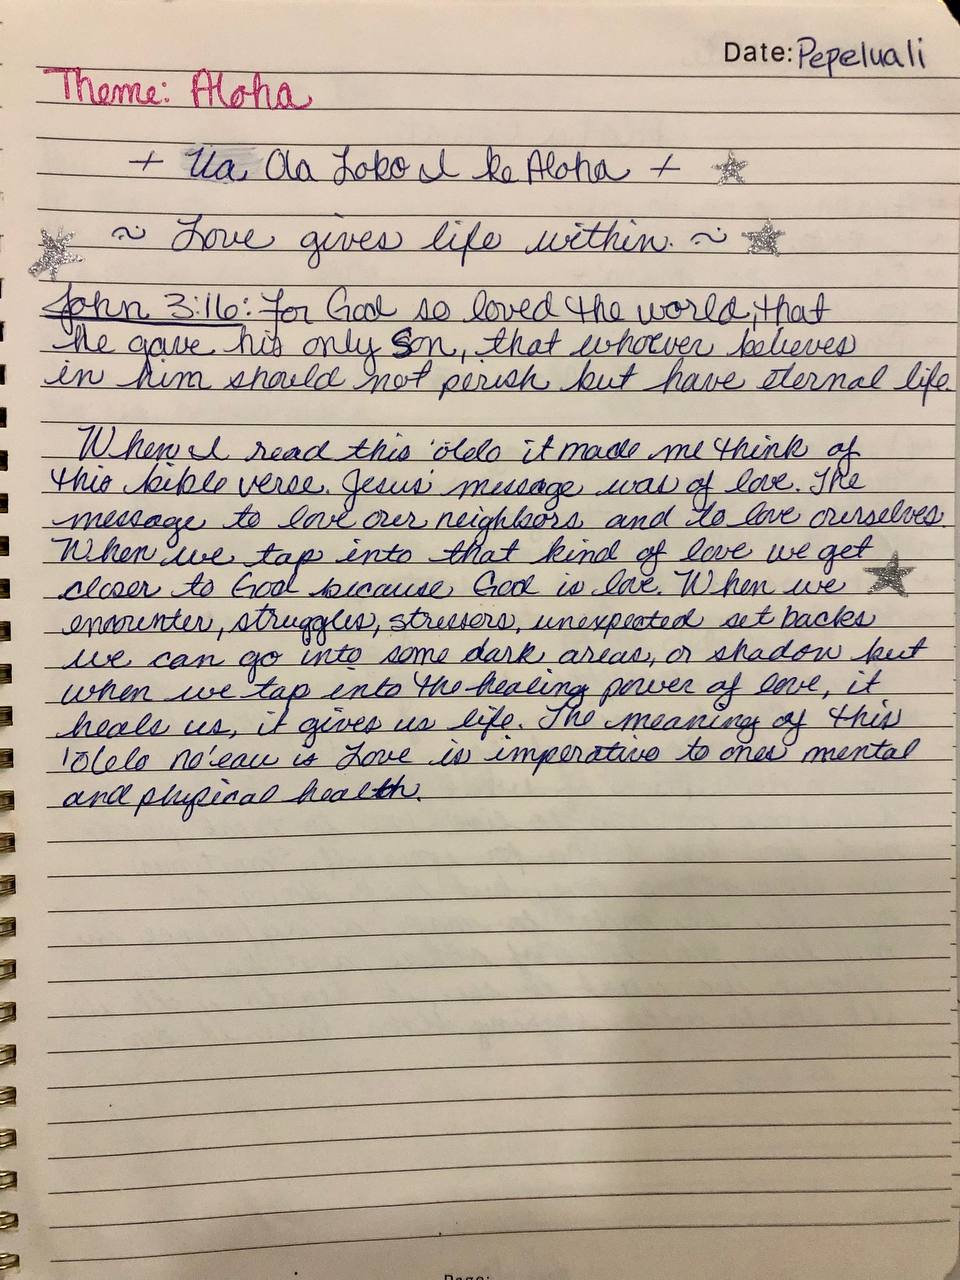 Date: Pepeluali
Theme: Aloha
+ Ua Ola Loko I ke Aloha +
~ Love gives life within. ~
John 3:16: For God so loved the world, that
he gave his only Son, that whoever believes
in him should not perish but have eternal life.
When I read this 'ōlelo it made me think of
this bible verse. Jesus' message was of love. The
message to love our neighbors and to love ourselves.
When we tap into that kind of love we get
closer to God because God is love. When we
encounter, struggles, stressors, unexpected set backs
we can go into some dark areas, or shadow but
when we tap into the healing power of love, it
heals us, it gives us life. The meaning of this
'ōlelo no'eau is Love is imperative to ones mental
and physical health.